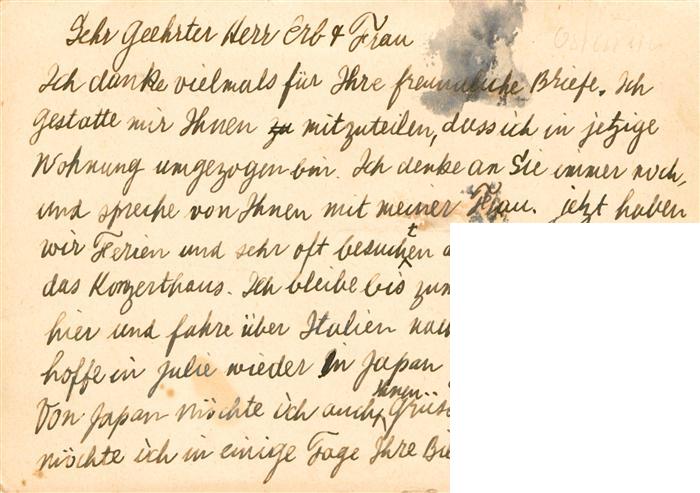 Sehr Geehrter Herr Erb & Frau
Ich danke vielmals für Ihre freundliche Briefe. Ich
gestatte mir Ihnen zu mitzuteilen, dass ich in jetzige
Wohnung umgezogen bin. Ich denke an Sie immer noch,
und spreche von Ihnen mit meiner Frau. jetzt haben
wir Ferien und sehr oft besuchten
das Konzerthaus. Ich bleibe bis zum
hier und fahre über Italien nac
hoffe in julie wieder in Japan
Von Japan möchte ich auch Ihnen Grüs
möchte ich in einige Tage Ihre Bi